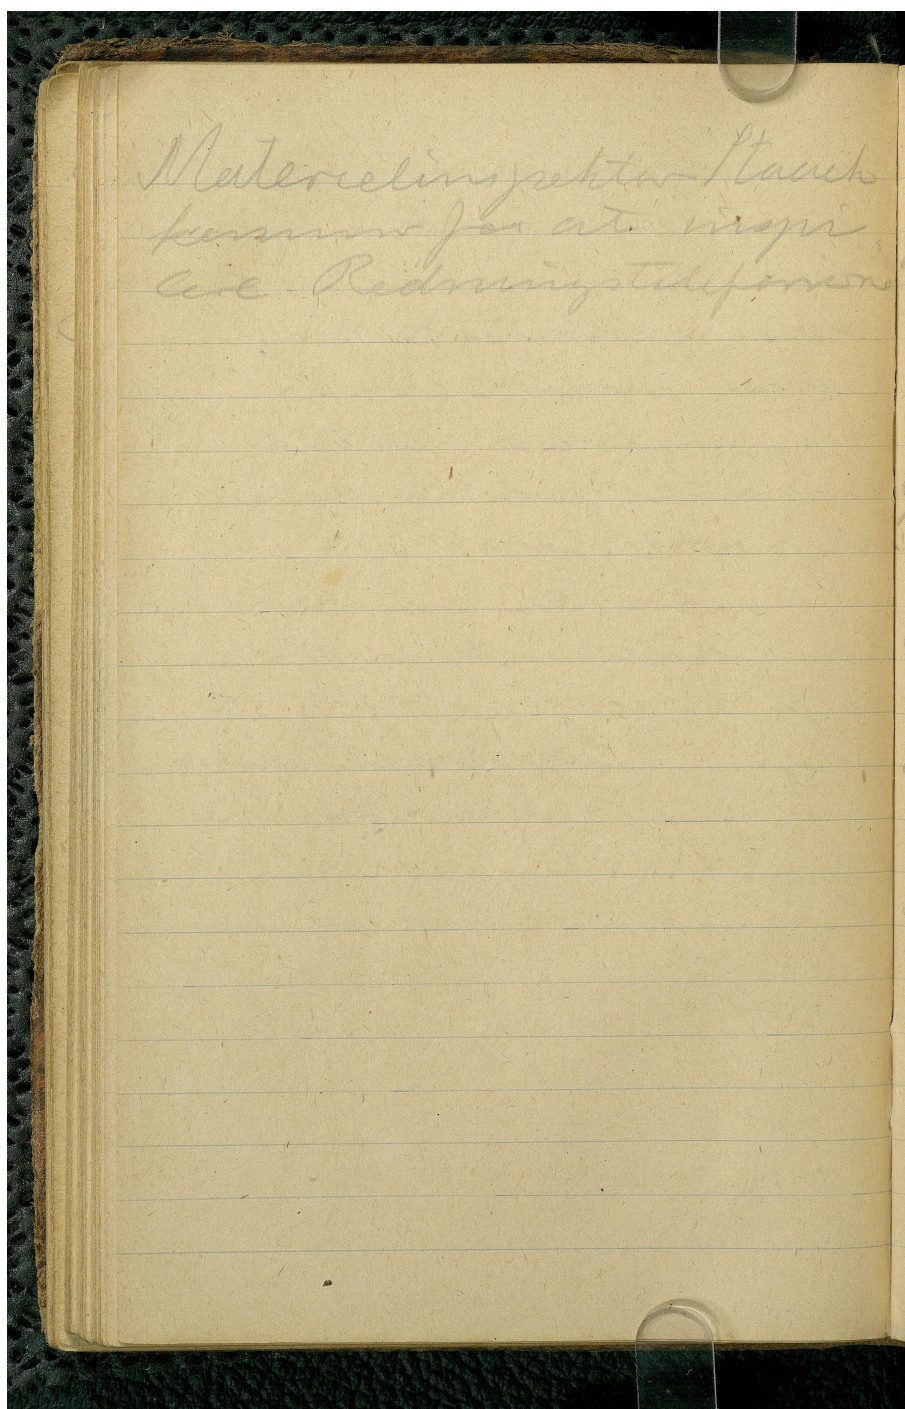 Materielinspektør Staack
kommer for at inspi
cere Redningstelefonerne